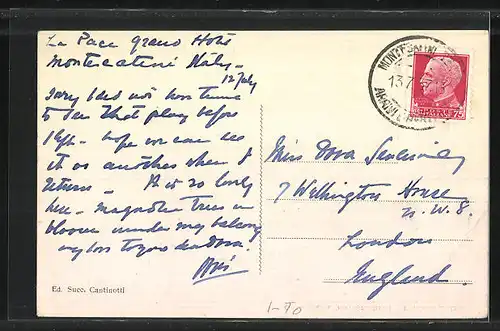 La Pace Grand Hotel
Montecatini Italy
12 July
Sorry I did not have time
to see that play before
I left - hope we can see
it or another when I
return - It is so lovely
here - magnolia trees in
bloom under my balcony
my love to you dear Dora.
Miss Dora
7 Wellington House
N. W. 8.
London
England
MONTECATINI
13.7
75
Ed. Succ. Cantinotti
1-90